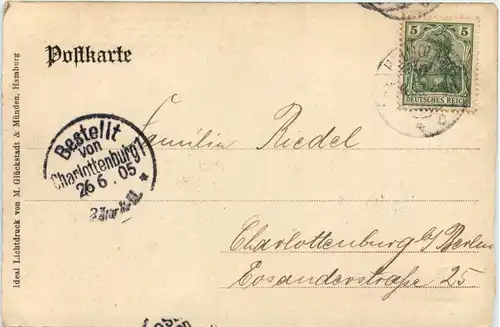 Postkarte
5 5
DEUTSCHES REICH
Bestellt
von
Charlottenburg 1
26 6. 05
Familie Riedel
Charlottenburg b/ Berlin
Eosanderstraße 25.
Ideal Lichtdruck von M. Glückstadt & Münden, Hamburg